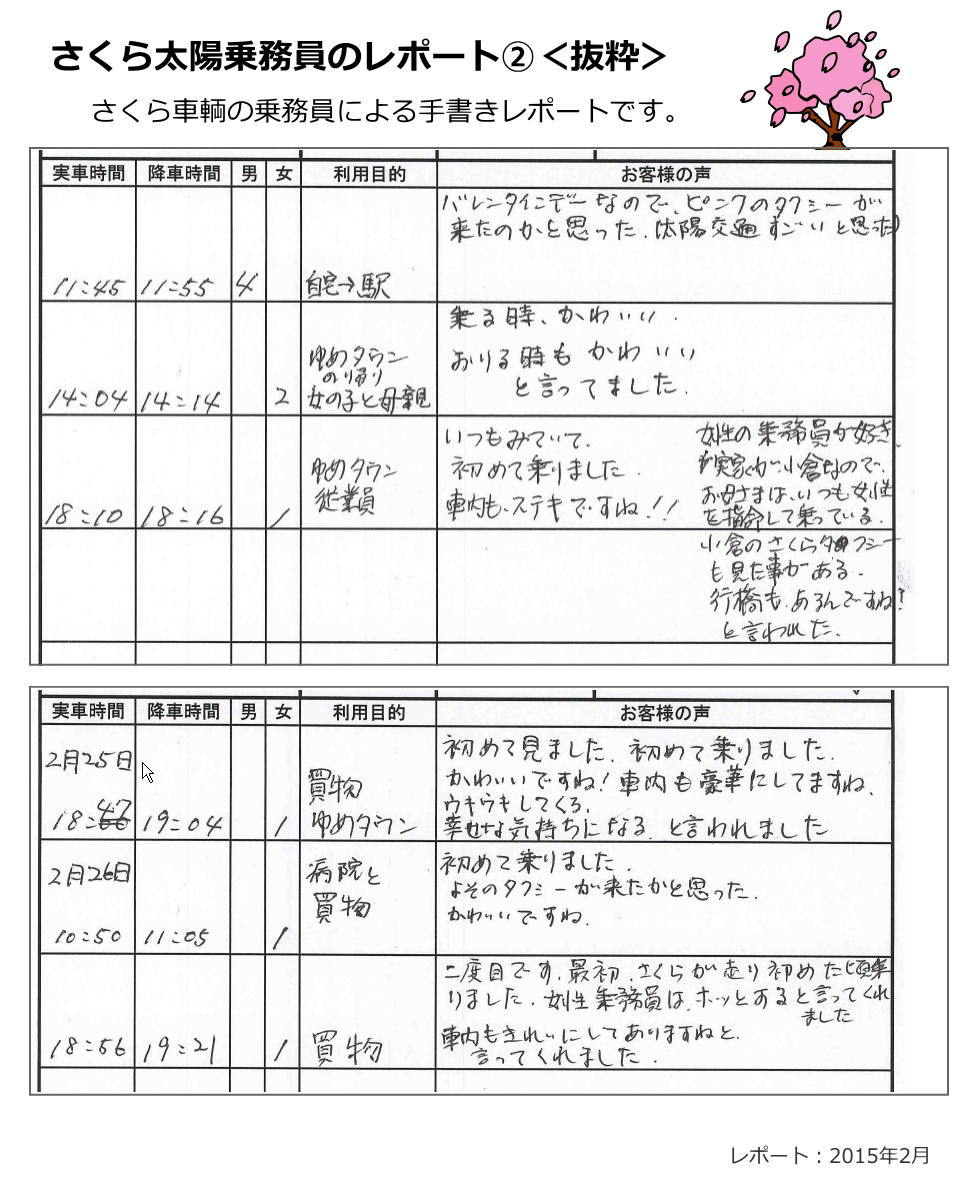 さくら太陽乗務員のレポート②＜抜粋＞
さくら車輌の乗務員による手書きレポートです。
実車時間 降車時間 男 女 利用目的 お客様の声
バレンタインデーなので、ピンクのタクシーが
来たのかと思った。太陽交通すごいと思った
11:45 11:55 4 自宅→駅
乗る時、かわいい．
おりる時もかわいい
と言ってました．
ゆめタウン
のり帰り
女の子と母親
14:04 14:14 2
いつもみていて、
初めて乗りました．
車内も、ステキですね!!
ゆめタウン
従業員
18:10 18:16 1
女性の乗務員が好き、
実家が小倉なので、
お母さまは、いつも女性
を指命して乗っている．
小倉のさくらタクシー
も見た事がある．
行橋も、あるんですね!
と言われた．
実車時間 降車時間 男 女 利用目的 お客様の声
2月25日
初めて見ました、初めて乗りました．
かわいいですね! 車内も豪華にしてますね、
ウキウキしてくる．
幸せな気持ちになる、と言われました
買物
ゆめタウン
18:47 19:04 1
2月26日
病院と
買物
初めて乗りました．
よそのタクシーが来たかと思った．
かわいいですね．
10:50 11:05 1
二度目です．最初、さくらが走り初めた頃乗
りました．女性乗務員は、ホッとすると言ってくれ
ました
車内もきれいにしてありますねと、
言ってくれました．
18:56 19:21 1 買物
レポート：2015年2月